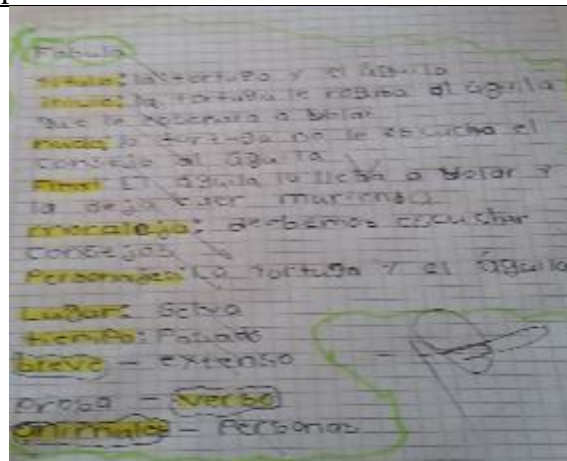 Fabula
titulo: la tortuga y el águila
inicio: la tortuga le rogaba al águila
que le enseñara a bolar
nudo: la tortuga no le escucha el
consejo al águila
Final: El águila la lleba a bolar y
la deja caer muriendo
moraleja: debemos escuchar
consejos
Personajes: La tortuga y el águila
Lugar: Selva
tiempo: Pasado
breve – extenso
prosa – verso
animales – Personas